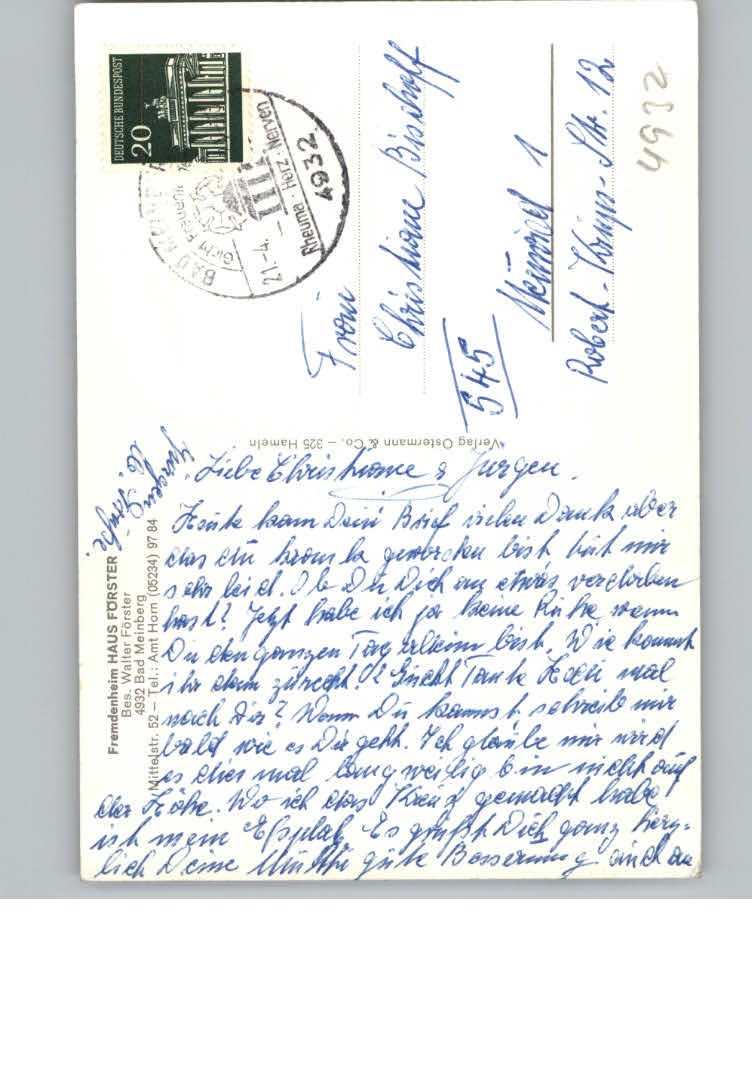 Fremdenheim HAUS FÖRSTER
Bes. Walter Förster
4932 Bad Meinberg
Mittelstr. 52 – Tel.: Amt Horn (05234) 97 84
Verlag Ostermann & Co. – 325 Hameln
DEUTSCHE BUNDESPOST
20
BAD MEINB
Gicht Frauen
21.-4.
Rheuma · Herz · Nerven
4932
4932
Frau
Christiane Bischoff
545 Neuwied 1
Robert-Krups-Str. 12
Liebe Christiane & Jürgen.
Heute kam Dein Brief vielen Dank aber
das du krank geworden bist tut mir
sehr leid. Ob Du Dich an etwas verdorben
hast? Jetzt habe ich ja keine Ruhe wenn
Du den ganzen Tag allein bist. Wie kommt
ihr denn zurecht? Guckt Tante mal
nach Dir? Wenn Du kannst schreib mir
bald wie es Dir geht. Ich glaube mir wird
es dies mal langweilig bin nicht auf
der Höhe. Wo ich das Kreuz gemacht habe
ist mein Essplatz Es grüßt Dich ganz herz-
lich Deine Mutti gute Besserung auch an
Jürgen